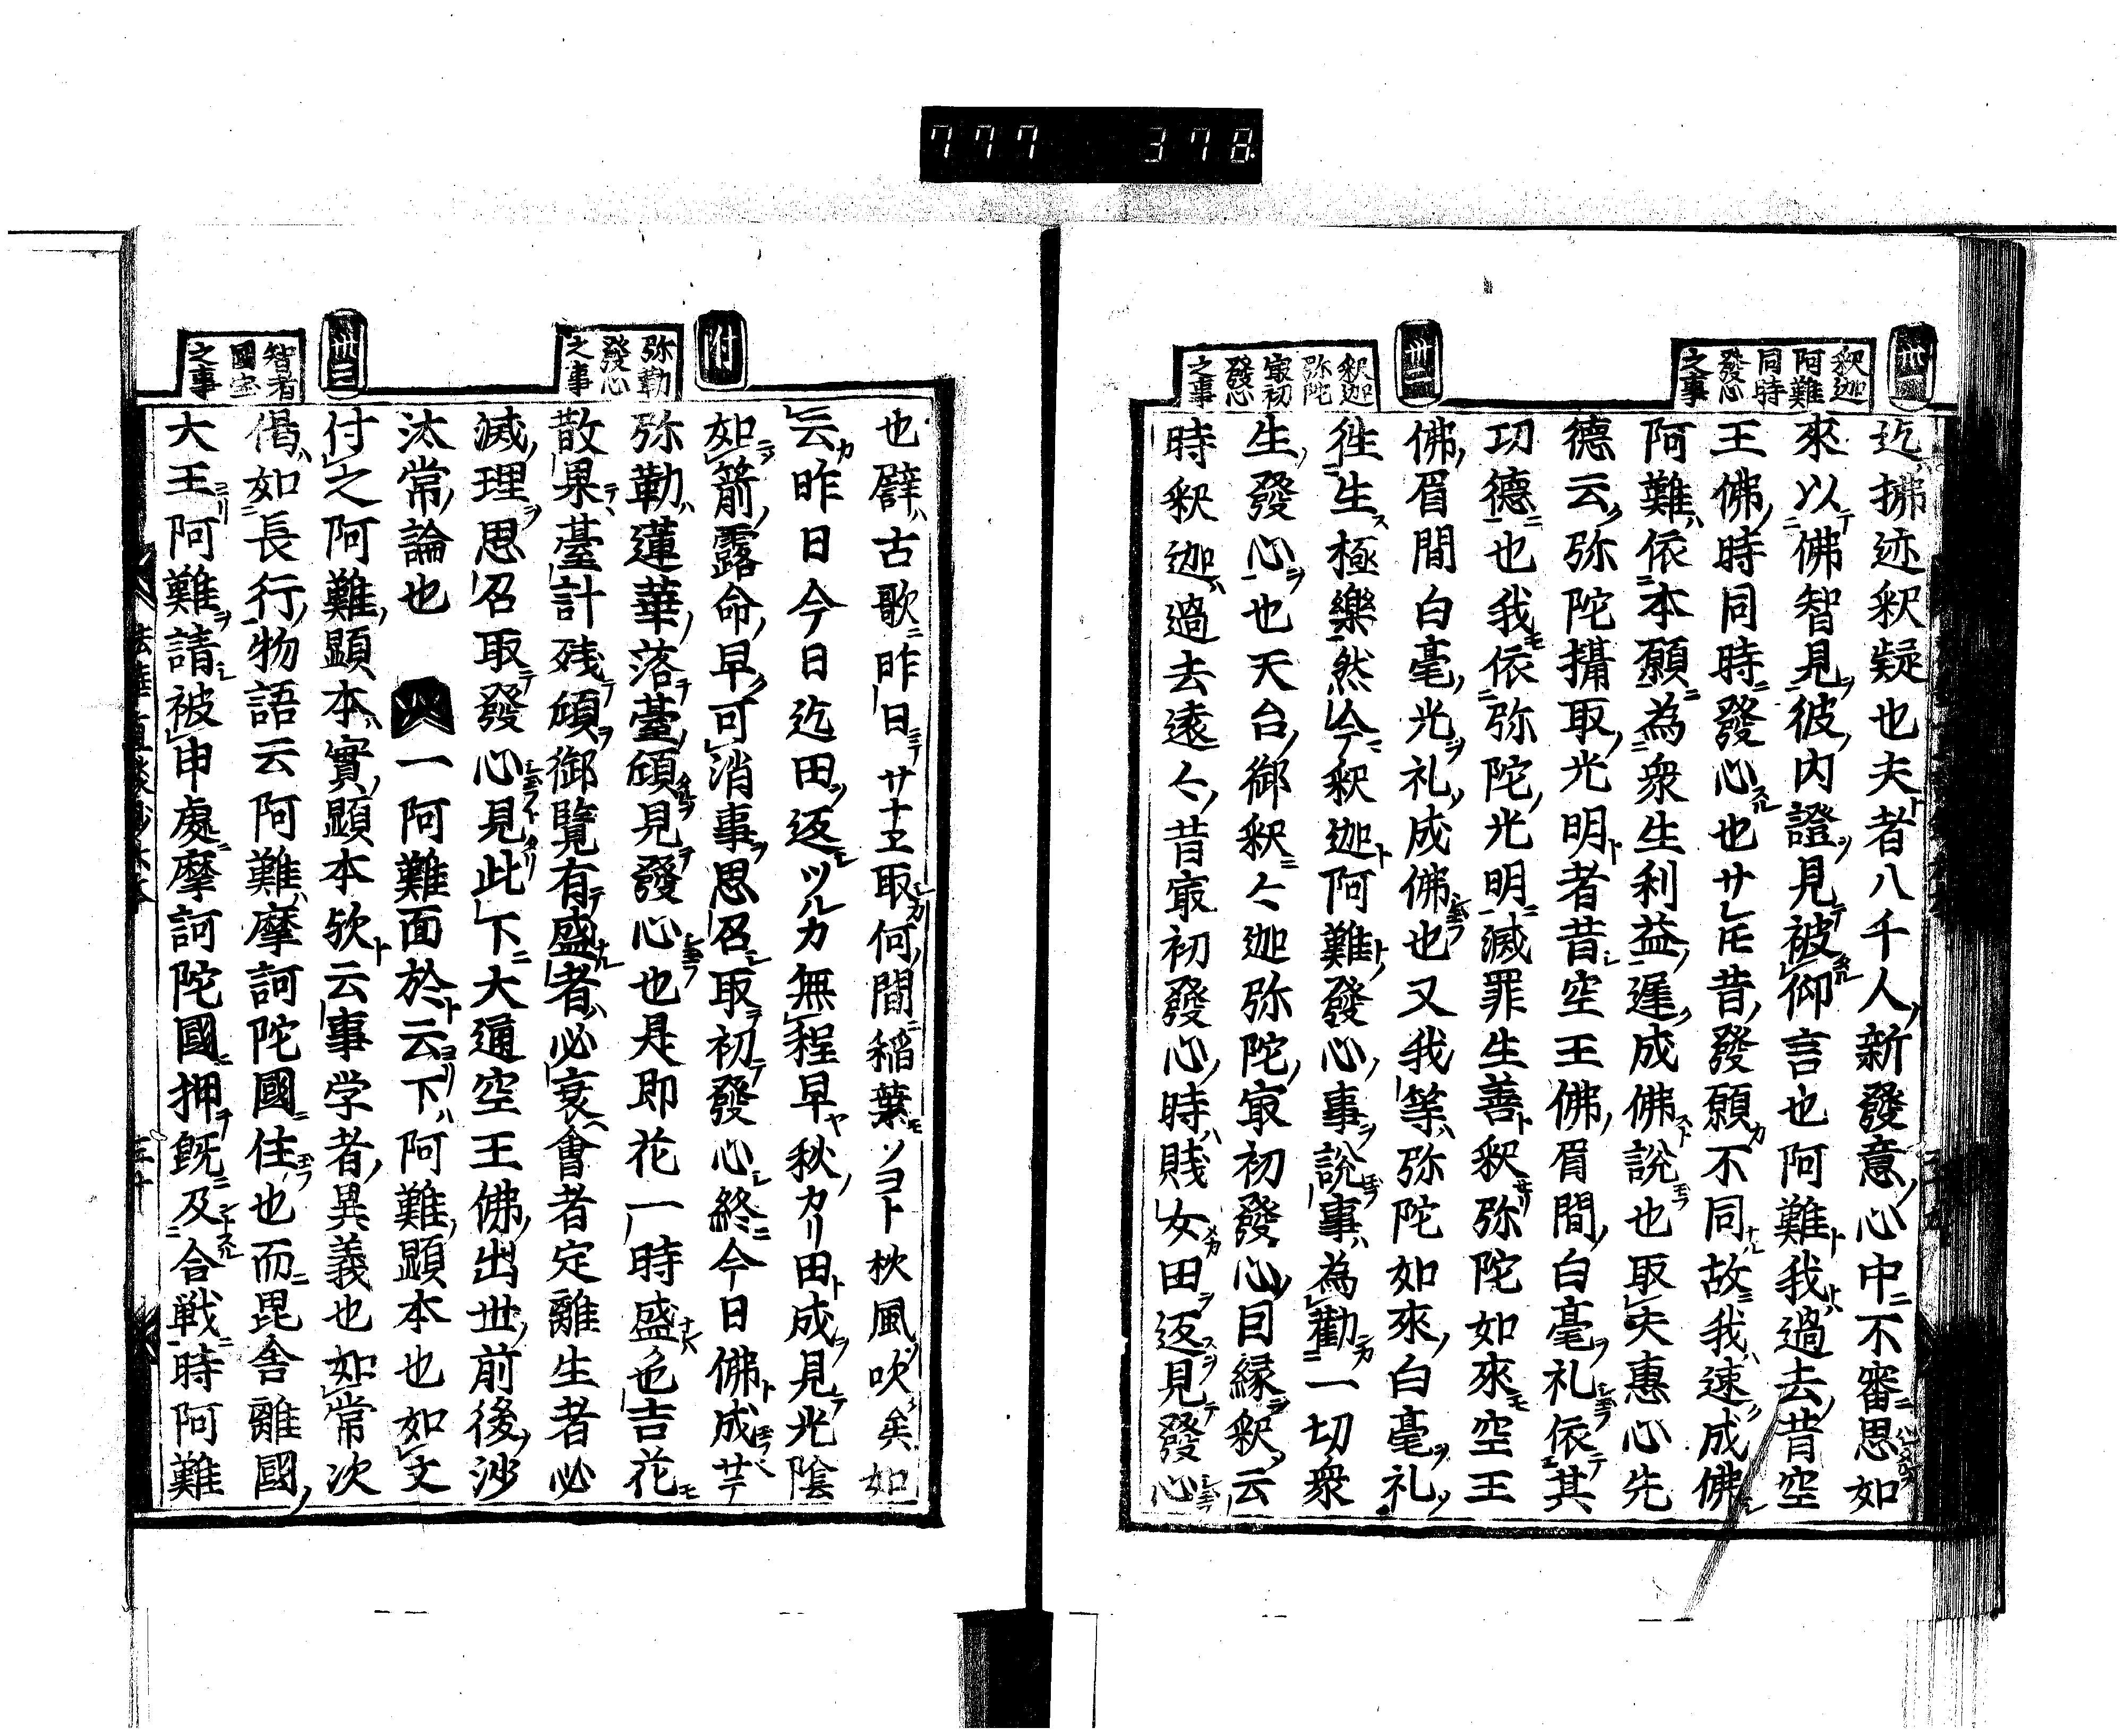 777 378
卅
釈迦
阿難
同時
發心
之事
迄拂迹釈疑也夫者八千人新發意心中不審思如
來以佛智見彼内證見被仰言也阿難我過去昔空
王佛時同時發心也サレ𪜈昔發願不同故我速成佛
阿難依本願為衆生利益遲成佛説也取夫惠心先
德云弥陀攝取光明者昔空王佛眉間白毫礼依其
功德也我依弥陀光明滅罪生善釈弥陀如來空王
佛眉間白毫光礼成佛也又我等弥陀如來白毫礼
徃生極樂然今釈迦阿難發心事説事為勸一切衆
生發心也天台御釈々迦弥陀冣初發心因縁釈云
時釈迦過去遠々昔冣初發心時賤女田返見發心
卅一
釈迦
弥陀
冣初
發心
之事
也譬古歌昨日サナヱ取何間稲葉ソヨト秋風吹矣如
云昨日今日迄田返ツルカ無程早秋カリ田成見光陰
如箭露命早可消事思召取初發心終今日佛成サテ
弥勒蓮華落臺頒見發心也是即花一時盛也吉花
散果臺計残頒御覧有盛者必衰會者定離生者必
滅理思召取發心見此下大通空王佛出世前後沙
汰常論也 一阿難面於云下阿難顕本也如文
付之阿難顕本實顕本欤云事学者異義也如常次
偈如長行物語云阿難摩訶陀國住也而毘舍離國
大王阿難請被申處摩訶陀國押既及合戦時阿難
付
弥勒
發心
之事
卅二
智者
國宝
之事